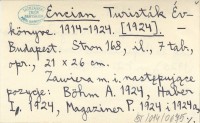 Encián Turisták Év-
könyve. 1914-1924. [1924]. -
Budapest. Stron 168, il., 7 tab.,
opr., 21 x 26 cm.
Zawiera m.i. następujące
pozycje: Böhm A. 1924, Habér
Ip. 1924, Magaziner P. 1924 i 1924a,